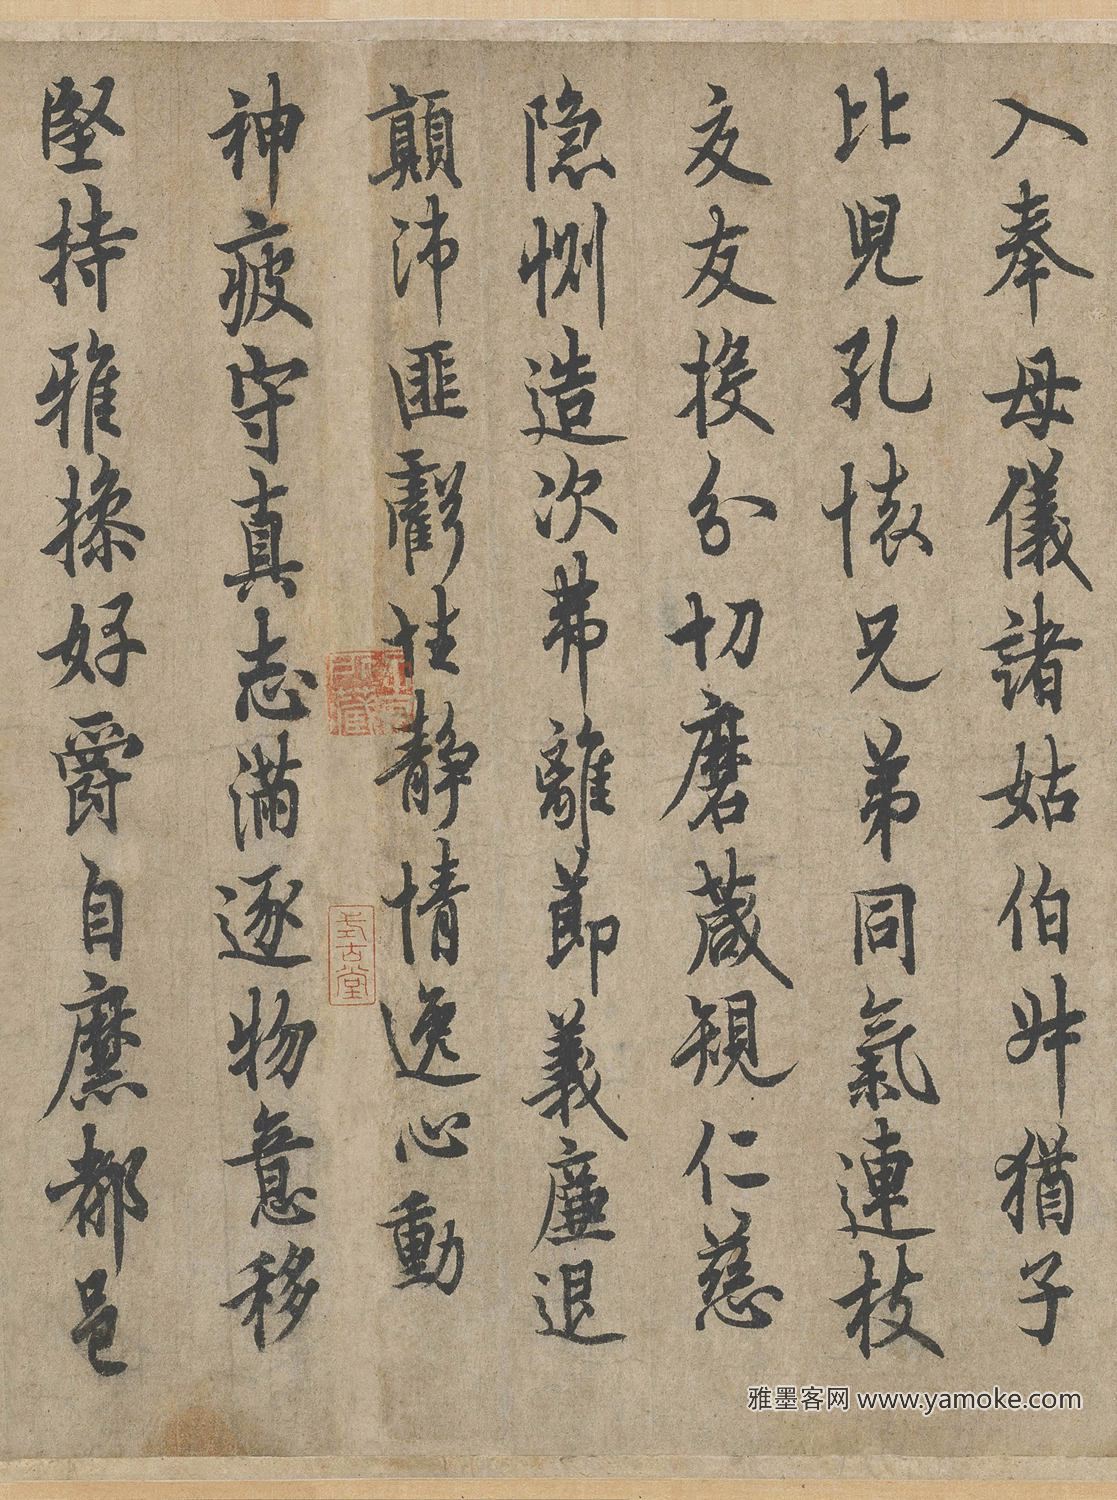 入奉母儀諸姑伯叔猶子
比兒孔懷兄弟同氣連枝
交友投分切磨葴規仁慈
隐惻造次弗離節義廉退
顛沛匪虧性静情逸心動
神疲守真志滿逐物意移
堅持雅操好爵自縻都邑
雅墨客网 www.yamoke.com